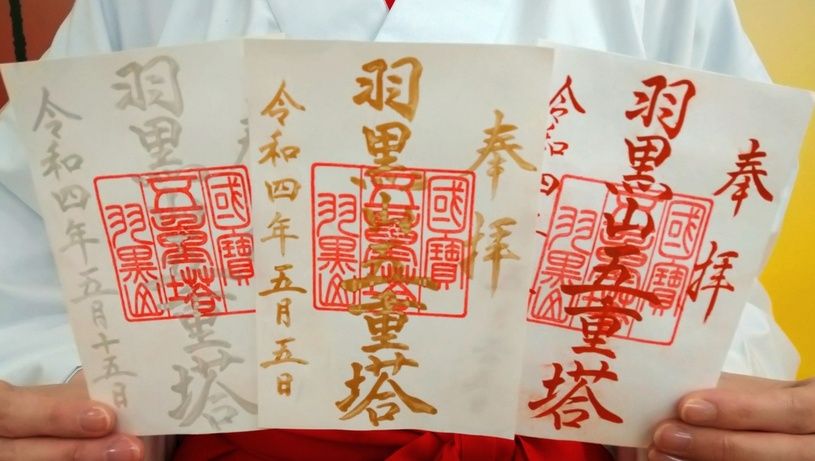 羽黒山五重塔
國寶
五重塔
羽黒山
令和四年五月十五日
奉拝
羽黒山五重塔
國寶
五重塔
羽黒山
令和四年五月五日
奉拝
羽黒山五重塔
國寶
五重塔
羽黒山
令和四